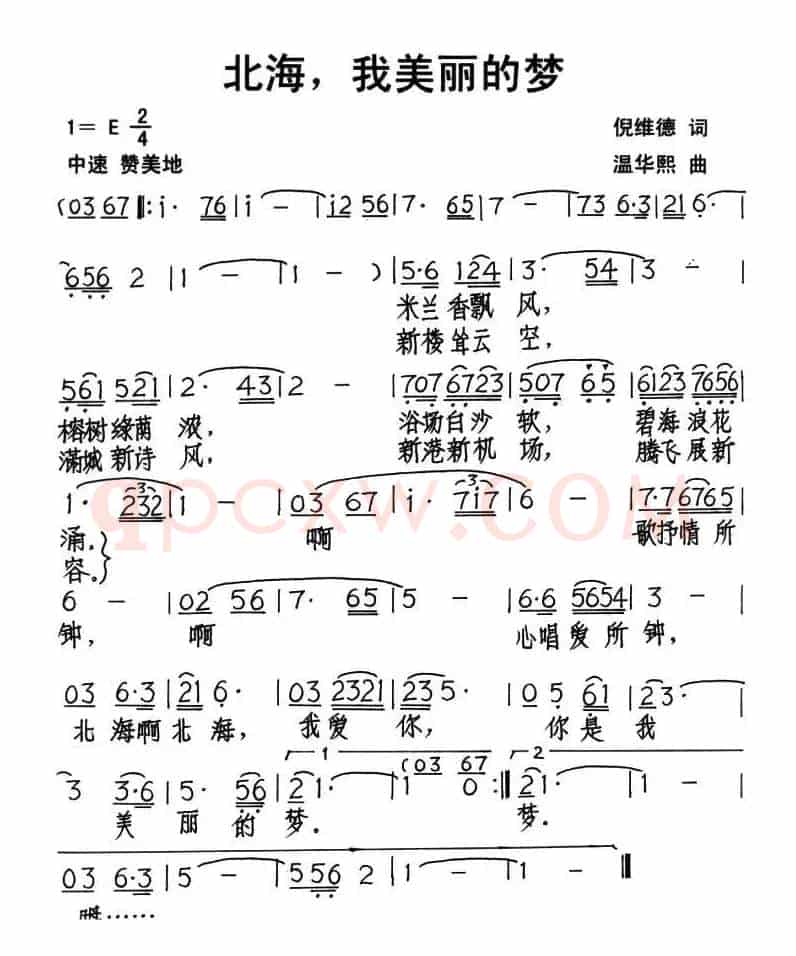 北海，我美丽的梦
1= E 2/4
倪维德 词
中速 赞美地
温华熙 曲
(03 67 ‖: i· 76 | i - | i2 56 | 7· 65 | 7 - | 73 6·3 | 21 6· |
656 2 | 1 - | 1 - ) | 5·6 124 | 3· 54 | 3 - |
米兰香飘 风，
新楼耸云 空，
561 521 | 2· 43 | 2 - | 707 6723 | 507 65 | 6123 7656 |
榕树绿荫 浓， 浴场白沙 软， 碧海浪花
满城新诗 风， 新港新机 场， 腾飞展新
1· 232 | i - | 03 67 | i· 7i7 | 6 - | 7·76765 |
涌。 啊 歌抒情所
容。
6 - | 02 56 | 7· 65 | 5 - | 6·6 5654 | 3 - |
钟， 啊 心唱爱所钟，
03 6·3 | 21 6· | 03 2321 | 235· | 05 61 | 23· |
北海啊北海， 我爱 你， 你是我
1 (03 67 2
3 3·6 | 5· 56 | 21· | 1 0 :‖ 21· | 1 - |
美 丽的梦。 梦。
03 6·3 | 5 - | 556 2 | 1 - | 1 - ‖
……
qpcxw.com